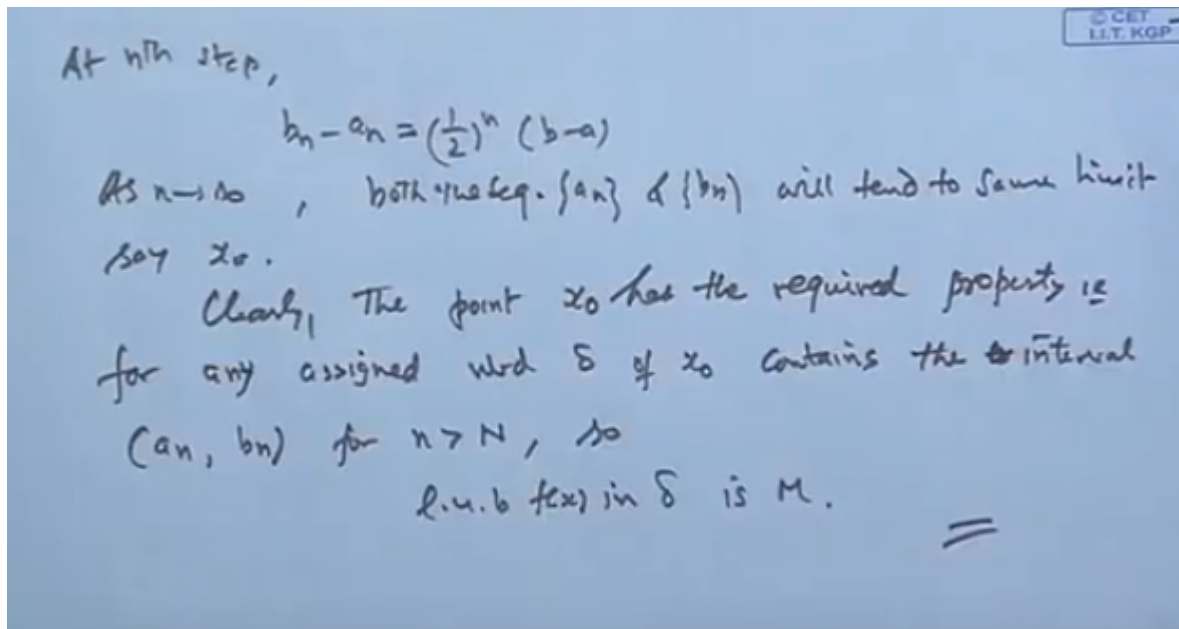 © CET
I.I.T. KGP
At nth step,
bn - an = (1/2)^n (b-a)
As n→∞ , both the seq. {an} & {bn} will tend to same limit
say x0.
Clearly, The point x0 has the required property ie
for any assigned nbd δ of x0 contains the interval
(an, bn) for n > N, so
l.u.b f(x) in δ is M.